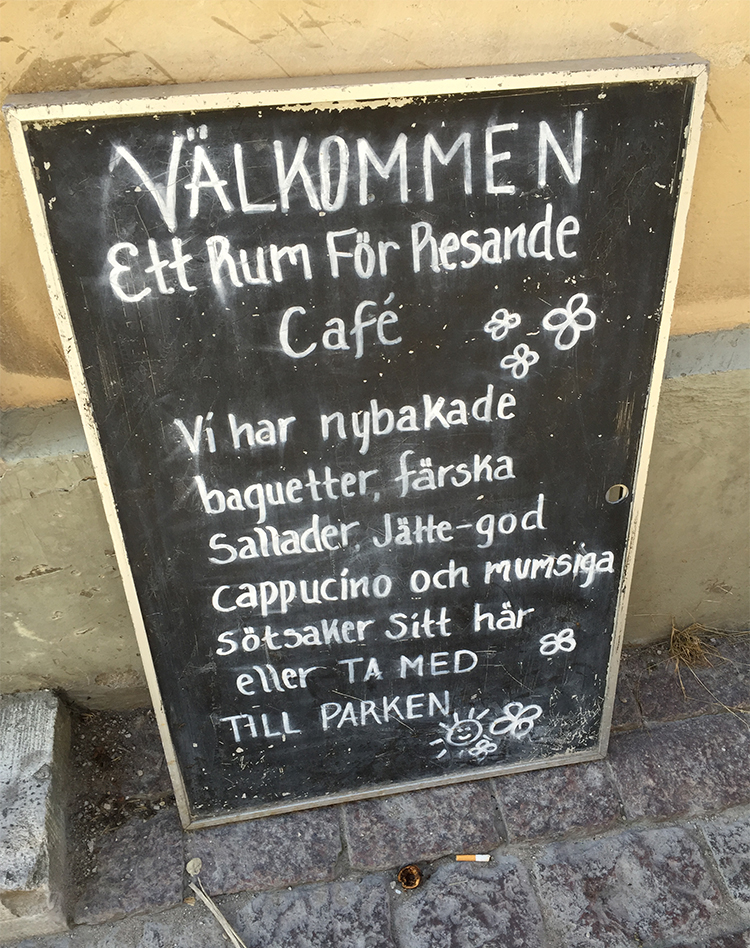 VÄLKOMMEN
Ett Rum För Resande
Café
Vi har nybakade
baguetter, färska
Sallader, Jätte-god
cappucino och mumsiga
sötsaker sitt här
eller TA MED
TILL PARKEN